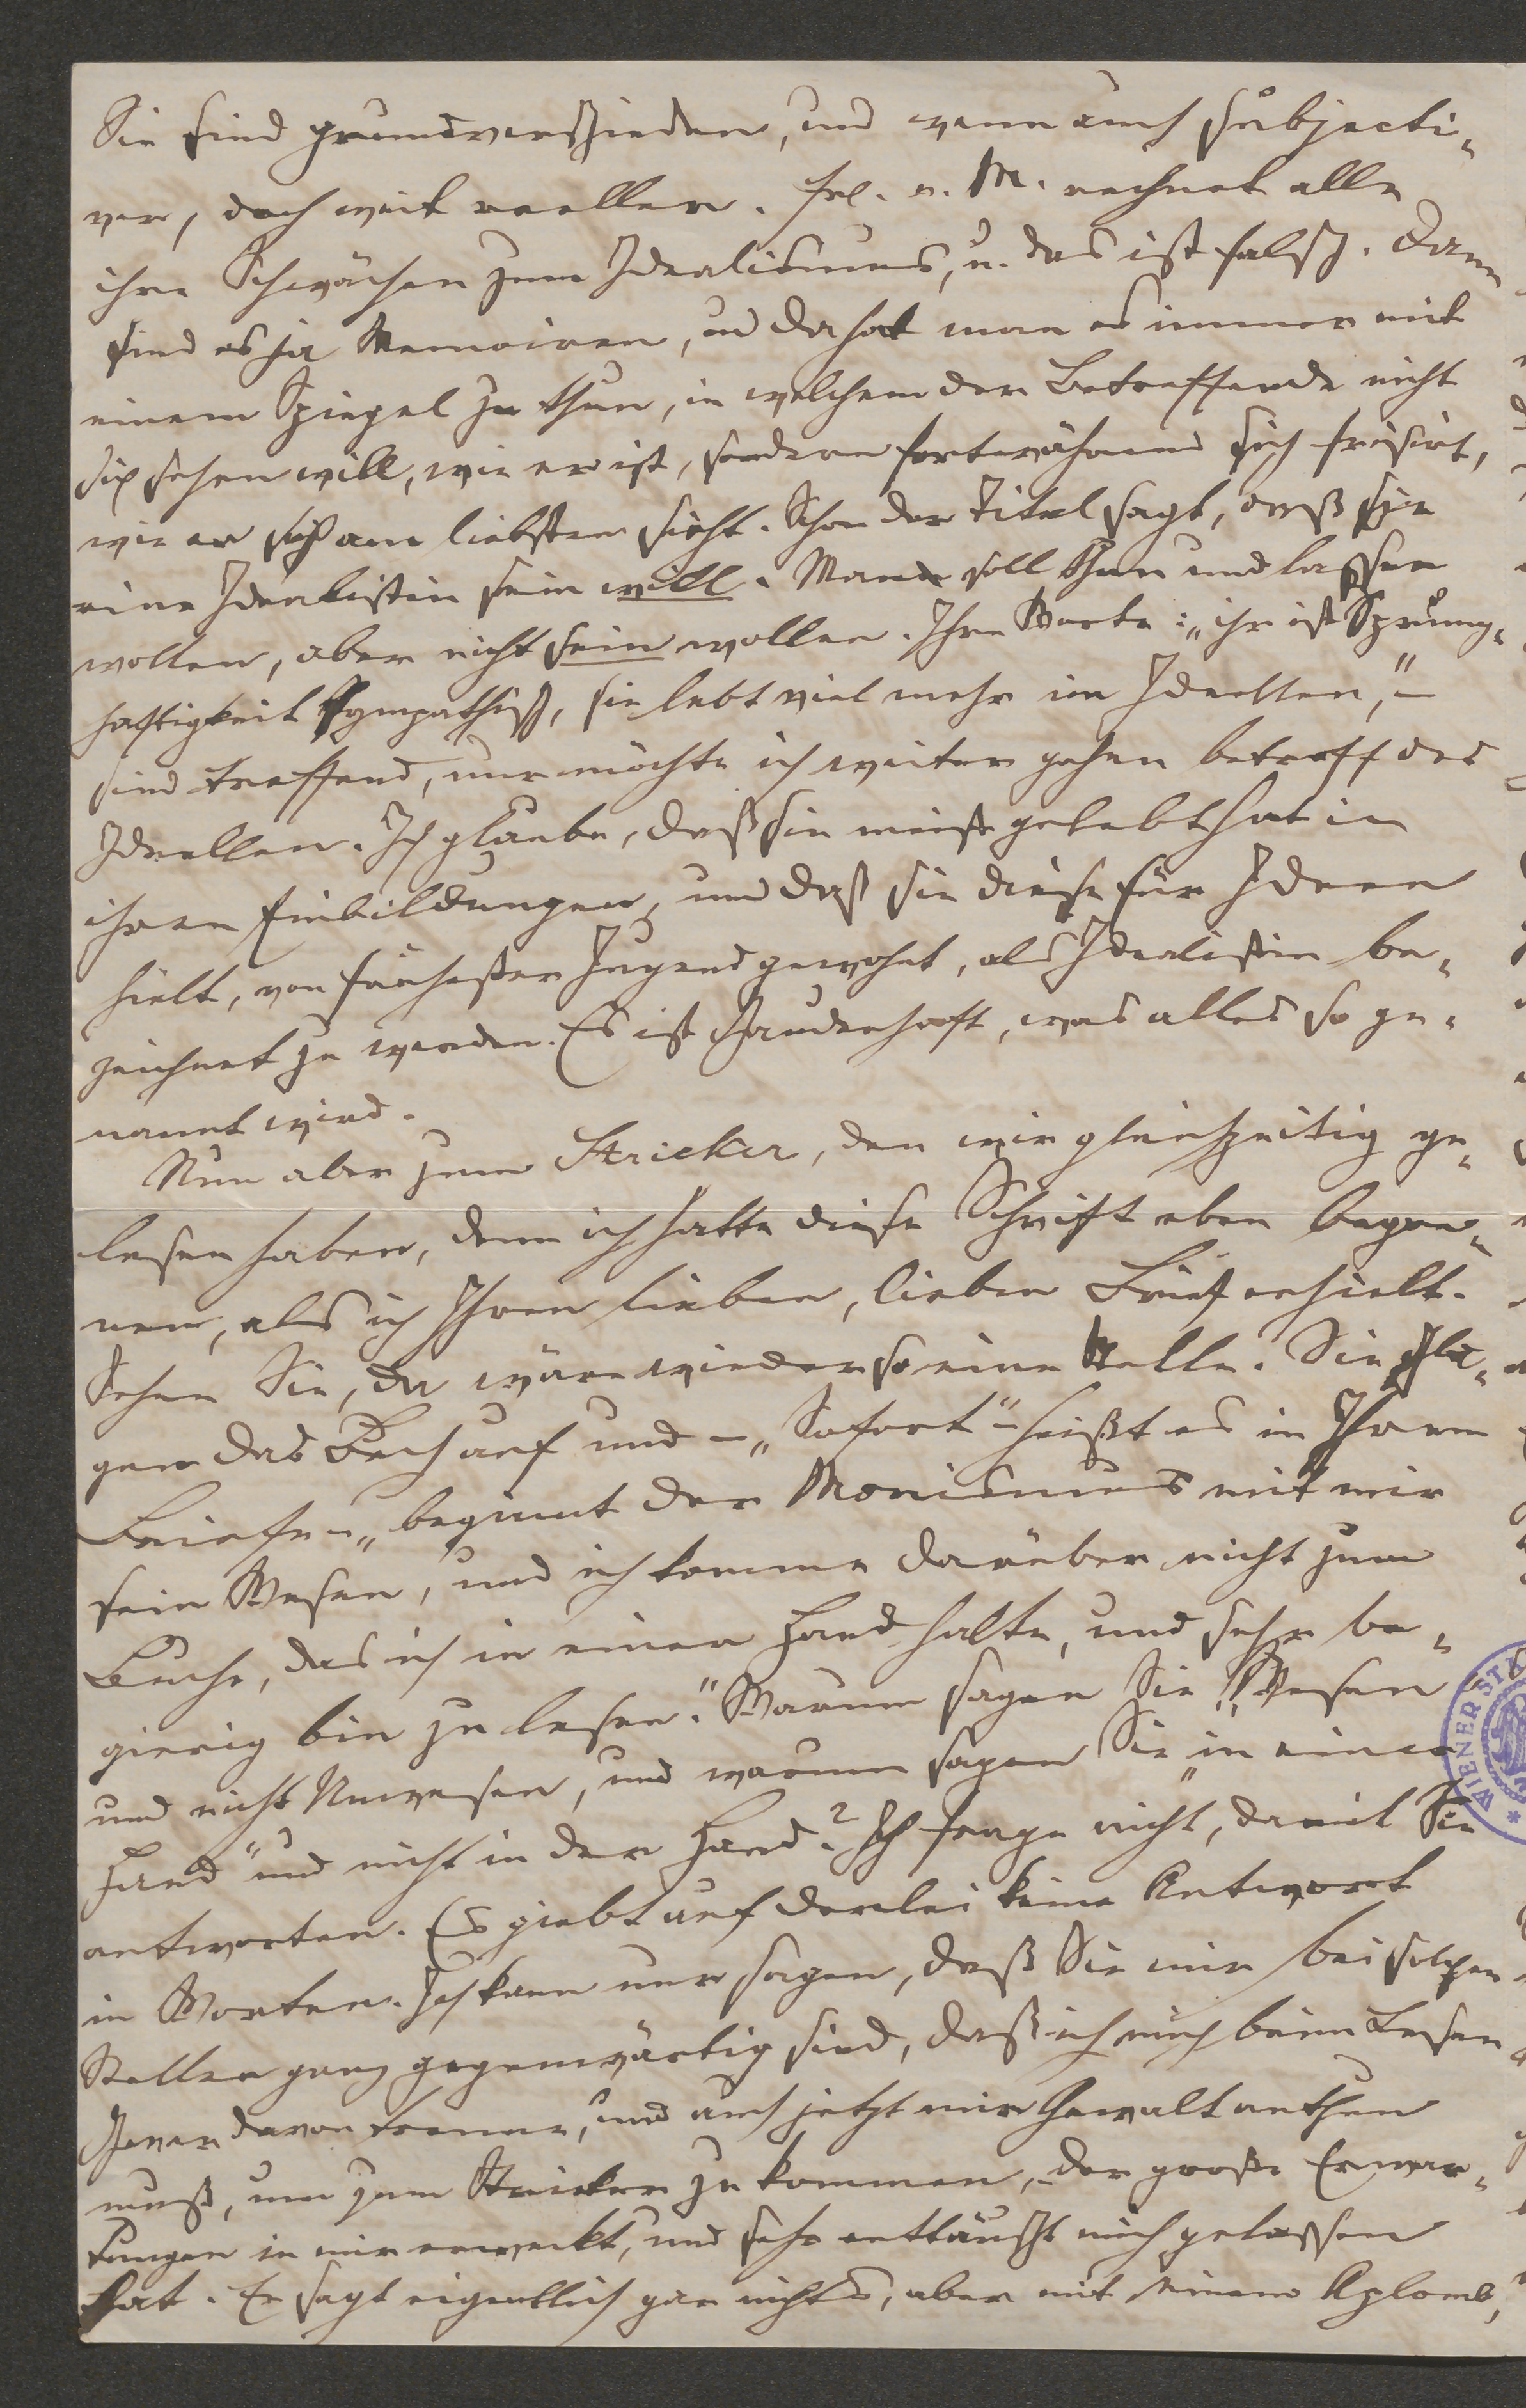 Sie sind grundverschieden, und wenn auch subjecti-
ver, doch weit reeller. Frl. v. M. rechnet alle
ihre Schwächen zum Idealismus, u. das ist falsch. Dann
sind es ja Memoiren, und da hat man es immer mit
einem Spiegel zu thun, in welchem der Betreffende nicht
sich sehen will, wie er ist, sondern fortwährend sich frisirt,
wie er sich am liebsten sieht. Schon der Titel sagt, daß sie
eine Idealistin sein will. Man soll thun und lassen
wollen, aber nicht sein wollen. Ihre Worte: „ihr ist Sprung-
haftigkeit sympathisch, sie lebt viel mehr im Ideellen," –
sind treffend, nur möchte ich weiter gehen betreff des
Ideellen. Ich glaube, daß sie meist gelebt hat in
ihren Einbildungen, und daß sie diese für Ideen
hielt, von frühester Jugend gewohnt, als Idealistin be-
zeichnet zu werden. Es ist schauderhaft, was alles so ge-
nannt wird.
Nun aber zum Stricker, den wir gleichzeitig ge-
lesen haben, denn ich hatte diese Schrift eben begon-
nen, als ich Ihren lieben, lieben Brief erhielt.
Sehen Sie, da wäre wieder so eine Stelle. Sie schla-
gen das Buch auf und – „Sofort" – heißt es in Ihrem
Briefe – „beginnt der Monismus mit mir
sein Wesen, und ich komme darüber nicht zum
Buche, das ich in einer Hand halte, und sehr be-
gierig bin zu lesen." Warum sagen Sie „Wesen"
und nicht Unwesen, und warum sagen Sie „in einer
Hand" und nicht in der Hand? Ich frage nicht, damit Sie
antworten. Es giebt auf derlei keine Antwort
in Worten. Ich kann nur sagen, daß Sie mir bei solchen
Stellen ganz gegenwärtig sind, daß ich mich beim Lesen
schwer davon trenne, und auch jetzt mir Gewalt anthun
muß, um zum Stricker zu kommen, der große Erwar-
tungen in mir erweckt, und sehr enttäuscht mich gelassen
hat. Er sagt eigentlich gar nichts, aber mit einem Aplomb,
WIENER STA